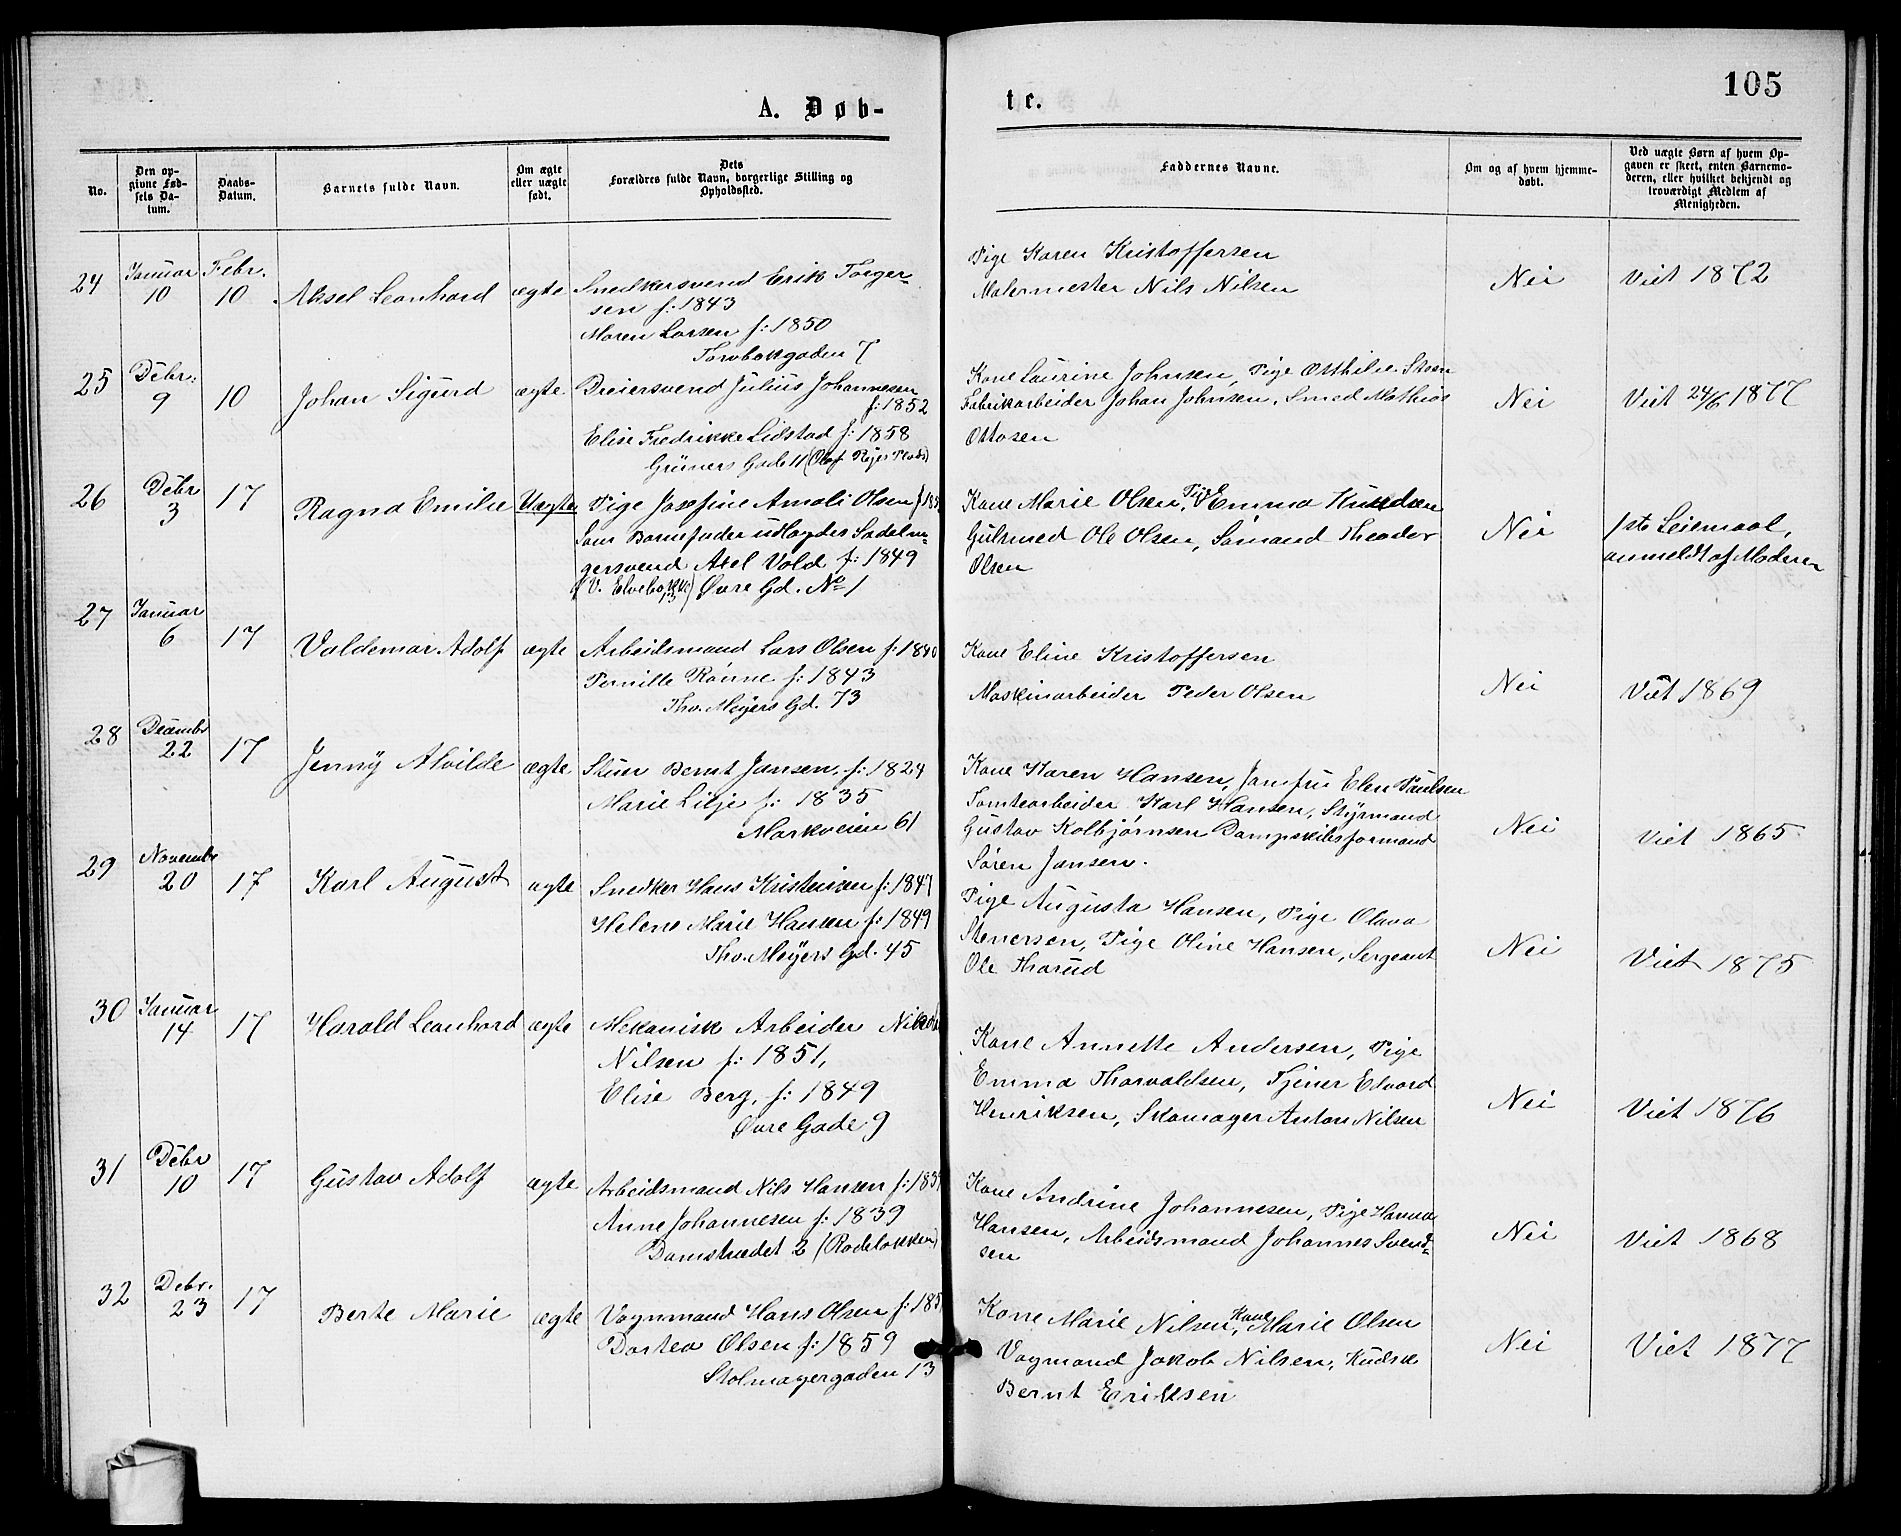 105
A. Døb-
te.
No.
Den op-
givne Fød-
sels Da-
tum.
Daabs-
Datum.
Barnets fulde Navn.
Om ægte
eller uægte
født.
Dets
Forældres fulde Navn, borgerlige Stilling og
Opholdssted.
Faddernes Navne.
Om og af hvem hjemme-
døbt.
Ved uægte Børn af hvem Op-
gaven er skeet, enten Barnemo-
deren, eller hvilket bekjendt og
troværdigt Medlem af
Menigheden.
24
Januar
10
Febr.
10
Aksel Leonhard
ægte
Snedkersvend Erik Torger-
sen f: 1843
Maren Larsen f: 1850
Torvbakgaden 7
Pige Karen Kristoffersen
Malermester Nils Nilsen
Nei
Viet 1872
25
Debr:
9
10
Johan Sigurd
ægte
Dreiersvend Julius Johannesen
f: 1852
Elise Fredrikke Lidstad f: 1858
Grüners Gade 11 (Olaf Ryes Plads)
Kone Laurine Johnsen, Pige Otthilie Steen
Fabrikarbeider Johan Johnsen, Smed Mathias
Ottosen
Nei
Viet 24/6 1877
26
Debr
3
17
Ragna Emilie
Uægte
Pige Josefine Amali Olsen
Som Barnefader udlagdes Sadelma-
gersvend Axel Vold f: 1849
(V. Elvebakke 13) Øvre Gd. No 1
Kone Marie Olsen, Pige Emma Knudsen
Gulsmed Ole Olsen, Sømand Theodor
Olsen
Nei
1ste Leiemaal,
anmeldt af Moderen
27
Januar
6
17
Valdemar Adolf
ægte
Arbeidsmand Lars Olsen f: 1840
Pernille Rønne f: 1843
Thv. Meyers Gd. 73
Kone Eline Kristoffersen
Maskinarbeider Peder Olsen
Nei
Viet 1869
28
Decembr
22
17
Jenny Alvilde
ægte
Stuer Bernt Jansen, f: 1824
Marie Lilje f: 1835
Markveien 61
Kone Karen Hansen, Jomfru Elen Paulsen
Tomtearbeider Karl Hansen, Styrmand
Gustav Kolbjørnsen Dampskibsformand
Søren Jansen.
Nei
Viet 1865
29
Novembr
20
17
Karl August
ægte
Snedker Hans Kristensen f: 1847
Helene Marie Hansen f: 1849
Thv. Meyers Gd. 45
Pige Augusta Hansen, Pige Olava
Stenersen, Pige Oline Hansen, Sergeant
Ole Thorud
Nei
Viet 1875
30
Januar
14
17
Harald Leonhard
ægte
Mekanisk Arbeider Nikolai
Nilsen f: 1851,
Elise Berg, f: 1849
Øvre Gade 9
Kone Annette Andersen, Pige
Emma Thorvaldsen, Tjener Edvard
Henriksen, Skomager Anton Nilsen
Nei
Viet 1876
31
Debr
10
17
Gustav Adolf
ægte
Arbeidsmand Nils Hansen
Anne Johannesen f: 1839
Damstrædet 2 (Rodeløkken)
Kone Andrine Johannesen, Pige Hanna
Hansen, Arbeidsmand Johannes Svend-
sen
Nei
Viet 1868
32
Debr.
23
17
Berte Marie
ægte
Vognmand Hans Olsen
Dortea Olsen f: 1859
Stolmagergaden 13
Kone Marie Nilsen, Kone Marie Olsen
Vogmand Jakob Nilsen, Kudsk
Bernt Eriksen
Nei
Viet 1877